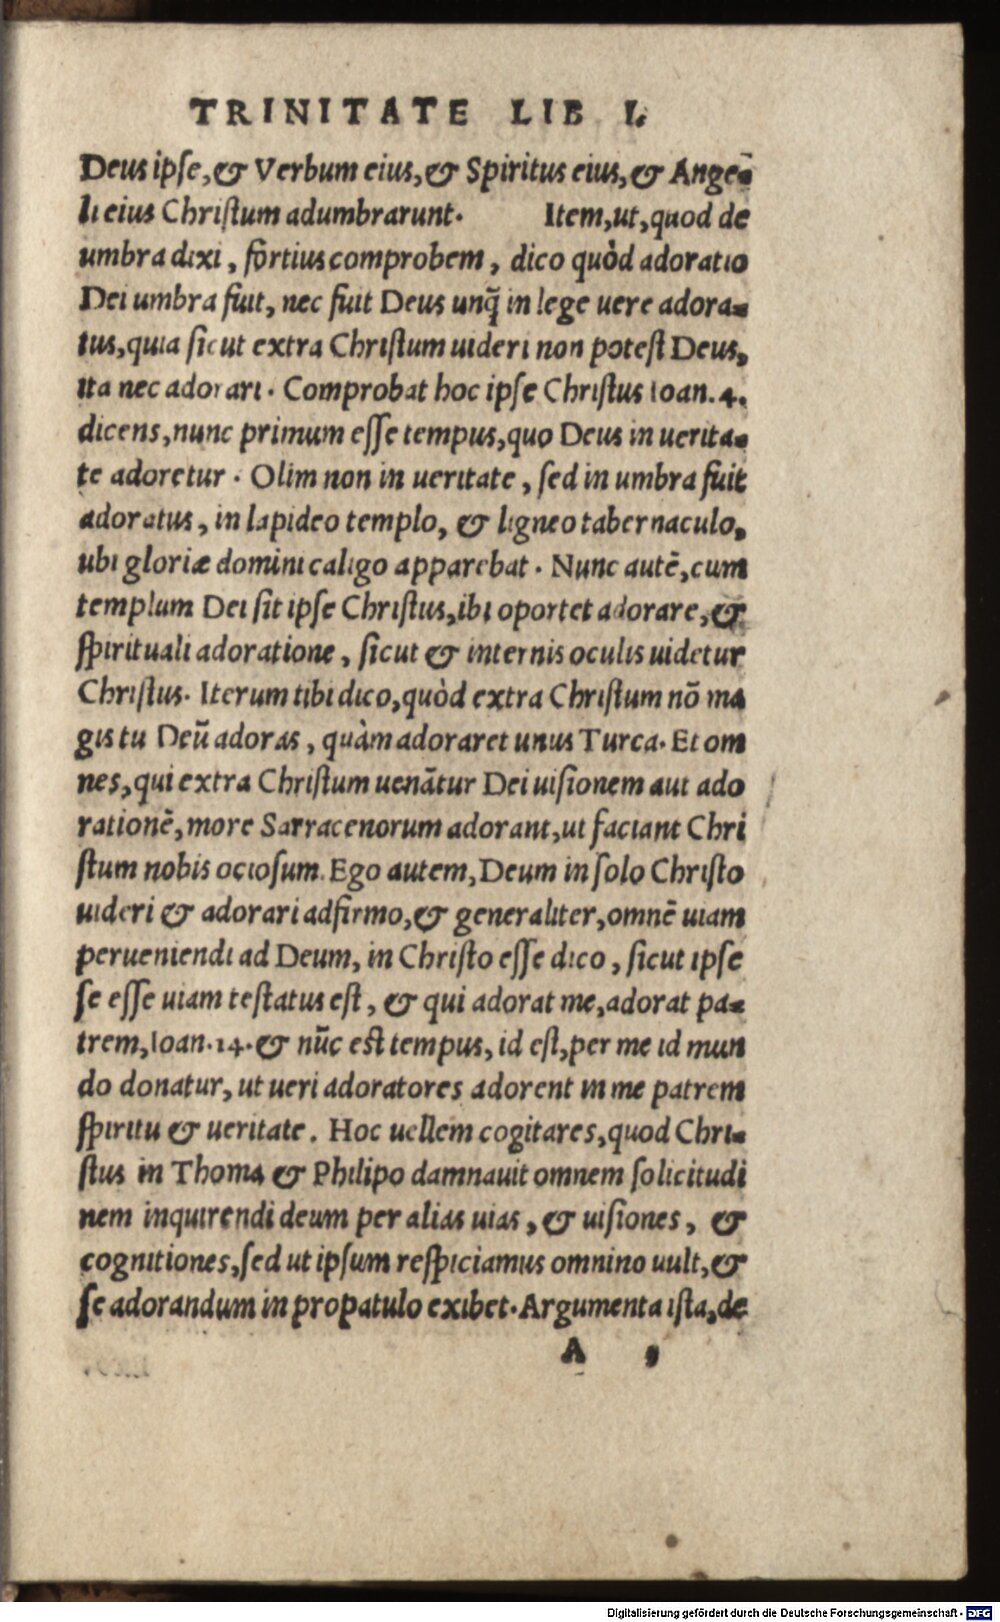 TRINITATE LIB I.
Deus ipse, & Verbum eius, & Spiritus eius, & Ange-
li eius Christum adumbrarunt. Item, ut, quod de
umbra dixi, fortius comprobem, dico quòd adoratio
Dei umbra fuit, nec fuit Deus unq̃ in lege uere adora-
tus, quia sicut extra Christum uideri non potest Deus,
ita nec adorari. Comprobat hoc ipse Christus Ioan. 4.
dicens, nunc primum esse tempus, quo Deus in uerita-
te adoretur. Olim non in ueritate, sed in umbra fuit
adoratus, in lapideo templo, & ligneo tabernaculo,
ubi gloriæ domini caligo apparebat. Nunc autē, cum
templum Dei sit ipse Christus, ibi oportet adorare, &
spirituali adoratione, sicut & internis oculis uidetur
Christus. Iterum tibi dico, quòd extra Christum nō ma
gis tu Deū adoras, quàm adoraret unus Turca. Et om
nes, qui extra Christum uenātur Dei uisionem aut ado
rationē, more Sarracenorum adorant, ut faciant Chri
stum nobis ociosum. Ego autem, Deum in solo Christo
uideri & adorari adfirmo, & generaliter, omnē uiam
perueniendi ad Deum, in Christo esse dico, sicut ipse
se esse uiam testatus est, & qui adorat me, adorat pa-
trem, Ioan. 14. & nūc est tempus, id est, per me id mun
do donatur, ut ueri adoratores adorent in me patrem
spiritu & ueritate. Hoc uellem cogitares, quod Chri-
stus in Thoma & Philipo damnauit omnem solicitudi
nem inquirendi deum per alias uias, & uisiones, &
cognitiones, sed ut ipsum respiciamus omnino uult, &
se adorandum in propatulo exibet. Argumenta ista, de
A
Digitalisierung gefördert durch die Deutsche Forschungsgemeinschaft - DFG